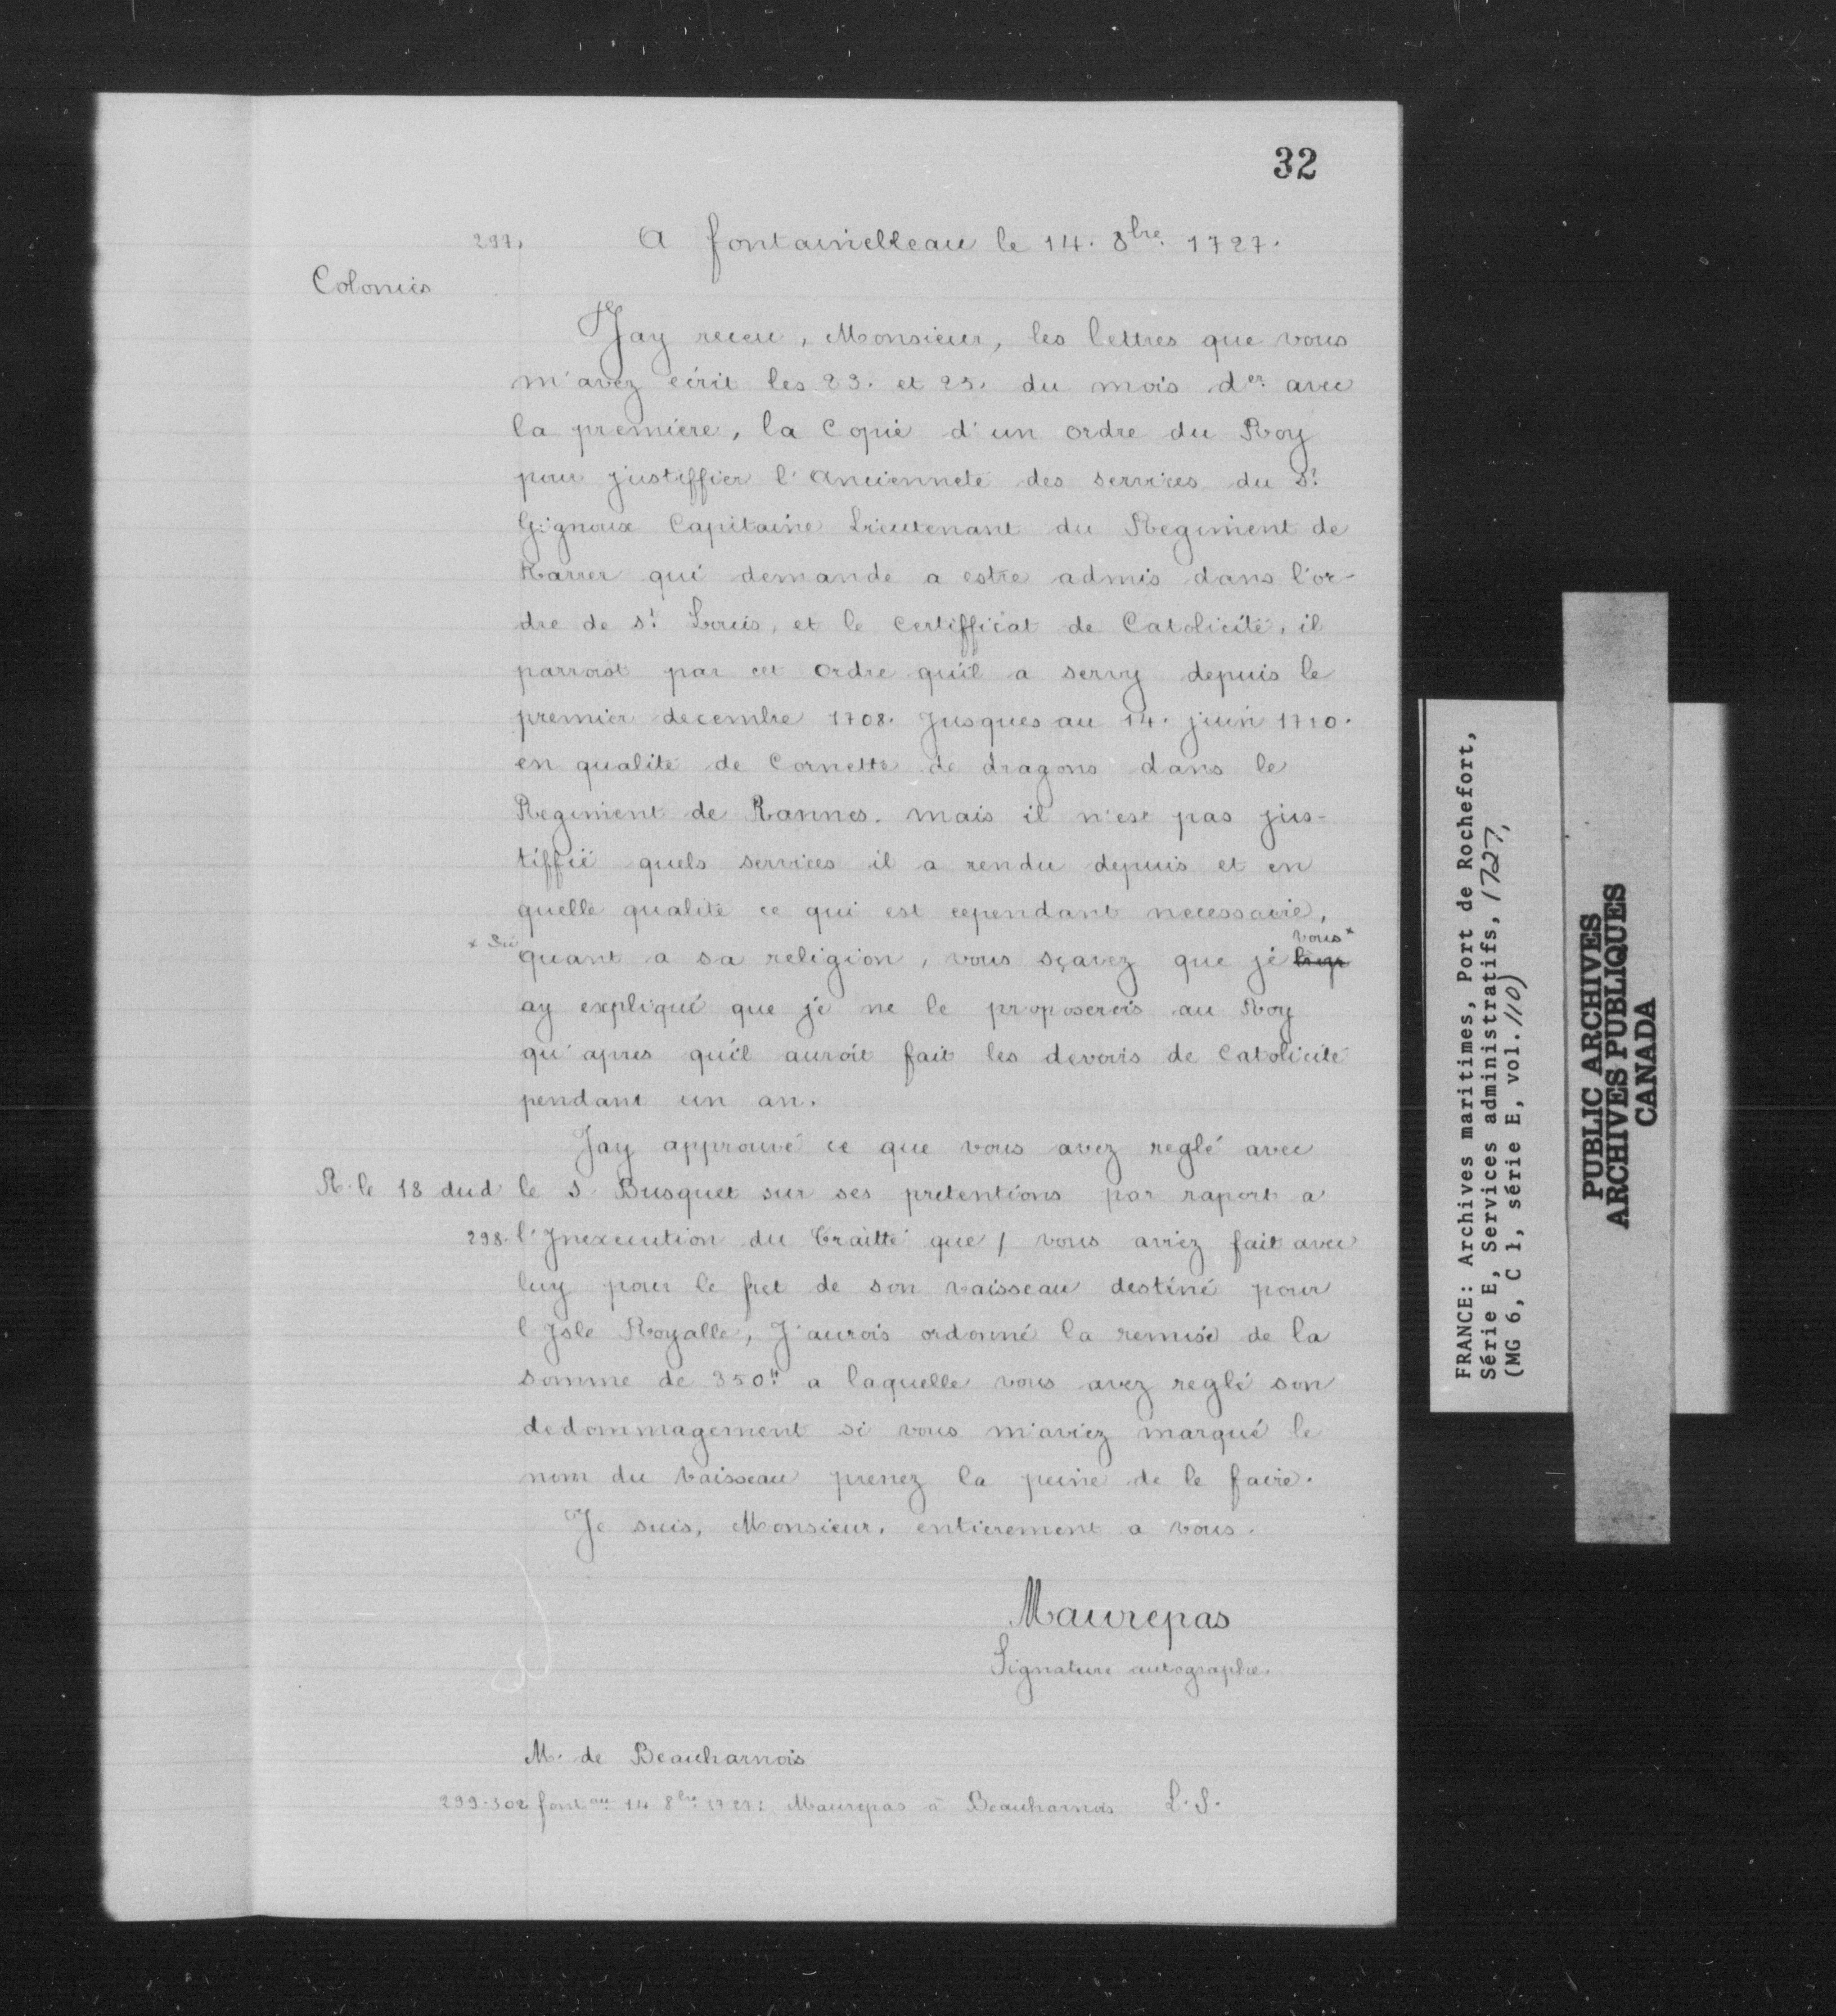 32
297. A fontainebleau le 14. 8bre 1727.
Colonies
Jay receu, Monsieur, les lettres que vous
m'avez écrit les 23. et 25. du mois der avec
la première, la Copie d'un ordre du Roy
pour justiffier l'ancienneté des services du Sr
Gignoux Capitaine Lieutenant du Regiment de
Karrer qui demande a estre admis dans l'or-
dre de St Louis, et le certifficat de Catolicité, il
parroist par cet ordre qu'il a servy depuis le
premier decembre 1708. Jusques au 14. juin 1710.
en qualité de Cornette de dragons dans le
Regiment de Rannes. mais il n'est pas jus-
tiffié quels services il a rendu depuis et en
quelle qualité ce qui est cependant necessaire,
vous *
* Sic quant a sa religion, vous sçavez que je luy
ay expliqué que je ne le proposerois au Roy
qu'apres qu'il auroit fait les devoirs de Catolicité
pendant un an.
Jay approuvé ce que vous avez reglé avec
R. le 18 dud le S. Busquet sur ses pretentions par raport a
298. l'Inexecution du traitté que / vous aviez fait avec
luy pour le fret de son vaisseau destiné pour
l'Isle Royalle, J'aurois ordonné la remise de la
somme de 350tt a laquelle vous avez reglé son
dedommagement si vous m'aviez marqué le
nom du vaisseau prenez la peine de le faire.
Je suis, Monsieur, entierement a vous.
Maurepas
Signature autographe.
M. de Beauharnois
299-302 fontau 14 8bre 1727: Maurepas à Beauharnois L.S.
FRANCE: Archives maritimes, Port de Rochefort,
Série E, Services administratifs, 1727,
(MG 6, C 1, série E, vol. 110)
PUBLIC ARCHIVES
ARCHIVES PUBLIQUES
CANADA